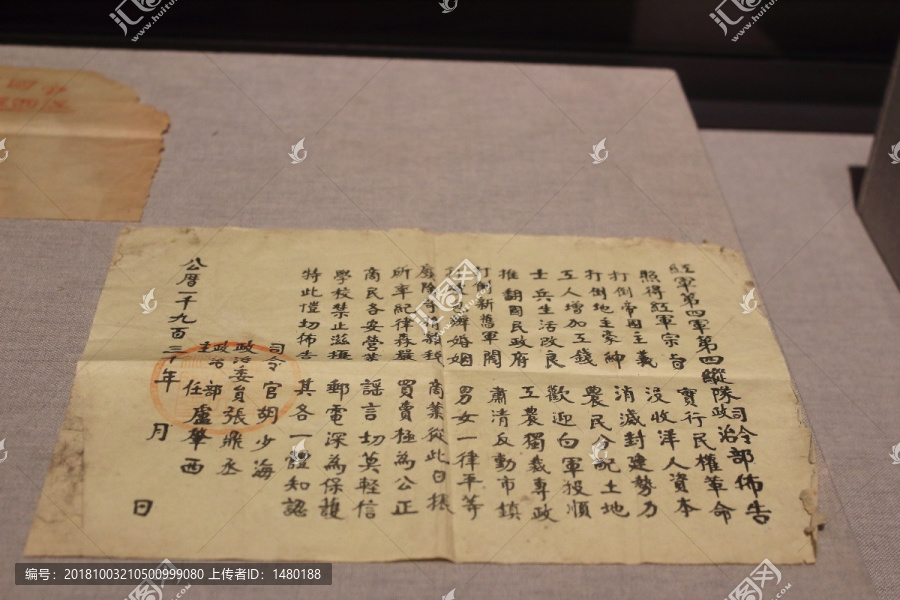 紅軍第四軍第四縱隊司令政治部佈告
照得紅軍宗旨 實行民權革命
打倒帝國主義 沒收洋人資本
打倒地主豪紳 消滅封建勢力
工人增加工錢 農民分配土地
士兵生活改良 歡迎白軍投順
推翻國民政府 工農獨裁專政
打倒新舊軍閥 肅清反動市鎮
包辦婚姻 男女一律平等
廢除苛捐雜稅 商業從此日振
所率紀律森嚴 買賣極為公正
商民各安營業 謠言切莫輕信
學校禁止滋擾 郵電深為保護
特此愷切佈告 其各一體知認
司令官胡少海
政治委員張鼎丞
政治部主任盧肇西
公曆一千九百三十年 月 日
编号：20181003210500999080 上传者ID：1480188